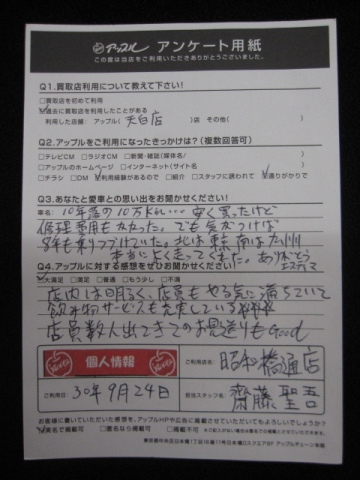 アップル アンケート用紙
この度は当店をご利用いただきありがとうございました。
Q1.買取店利用について教えて下さい!
□買取店を初めて利用
☑過去に買取店を利用したことがある
利用した店舗: アップル( 天白店 )店 その他( )
Q2.アップルをご利用になったきっかけは?(複数回答可)
□テレビCM □ラジオCM □新聞・雑誌(媒体名/ )
□アップルのホームページ □インターネット(サイト名 )
□チラシ □DM ☑利用経験があるので □紹介 □スタッフに誘われて ☑通りがかりで
Q3.あなたと愛車との思い出をお聞かせください!
車名: 10年落の10万km… 安く買ったけど
修理費用もかかった。でも気がつけば
8年も乗りつづけていた。北は東京、南は九州
本当によく走ってくれた。ありがとう
エスティマ
Q4.アップルに対する感想をぜひお聞かせください!
☑大満足 □満足 □普通 □もう少し □不満
店内は明るく、店員もやる気に満ちていて
飲み物サービスも充実している
店員数人出てきてのお見送りもGood
個人情報
ご利用店名: 昭和橋通店
ご利用日: 30年9月24日
担当スタッフ名: 齋藤聖吾
お客様に書いていただいた感想を、アップルHPや広告に掲載させていただいてもよろしいでしょうか?
☑実名で掲載可 □匿名なら掲載可 □掲載不可
東京都中央区日本橋1丁目19番11号日本橋Dスクエア8F アップルチェーン本部